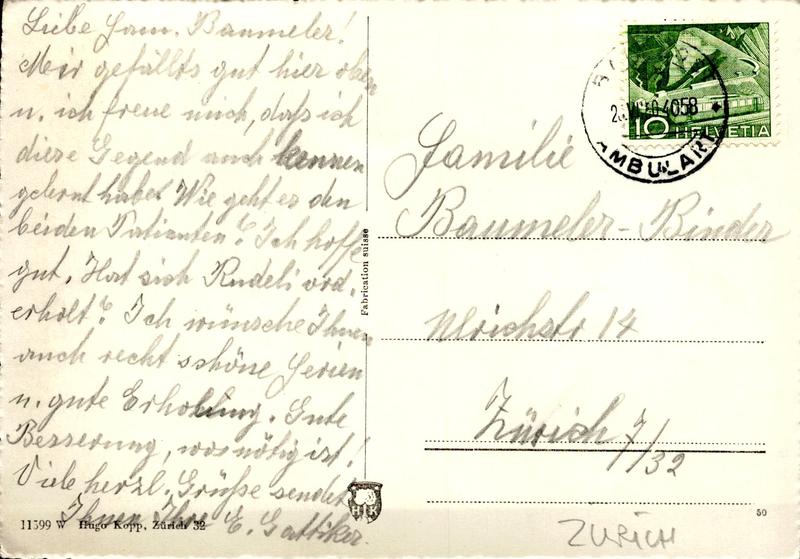 Liebe Fam. Baumeler!
Mir gefällts gut hier oben
u. ich freue mich, dass ich
diese Gegend auch kennen
gelernt habe. Wie geht es den
beiden Patienten? Ich hoffe
gut. Hat sich Rudeli ord.
erholt? Ich wünsche Ihnen
auch recht schöne Ferien
u. gute Erholung. Gute
Besserung, wo's nötig ist!
Viele herzl. Grüße sendet
Ihnen Ihre E. Gattiker.
11599 W Hugo Kopp, Zürich 32
Fabrication suisse
HK
AMBULANT
4058
10 HELVETIA
Familie
Baumeler-Binder
Ulrichstr 14
Zürich 7/32
50
ZURICH